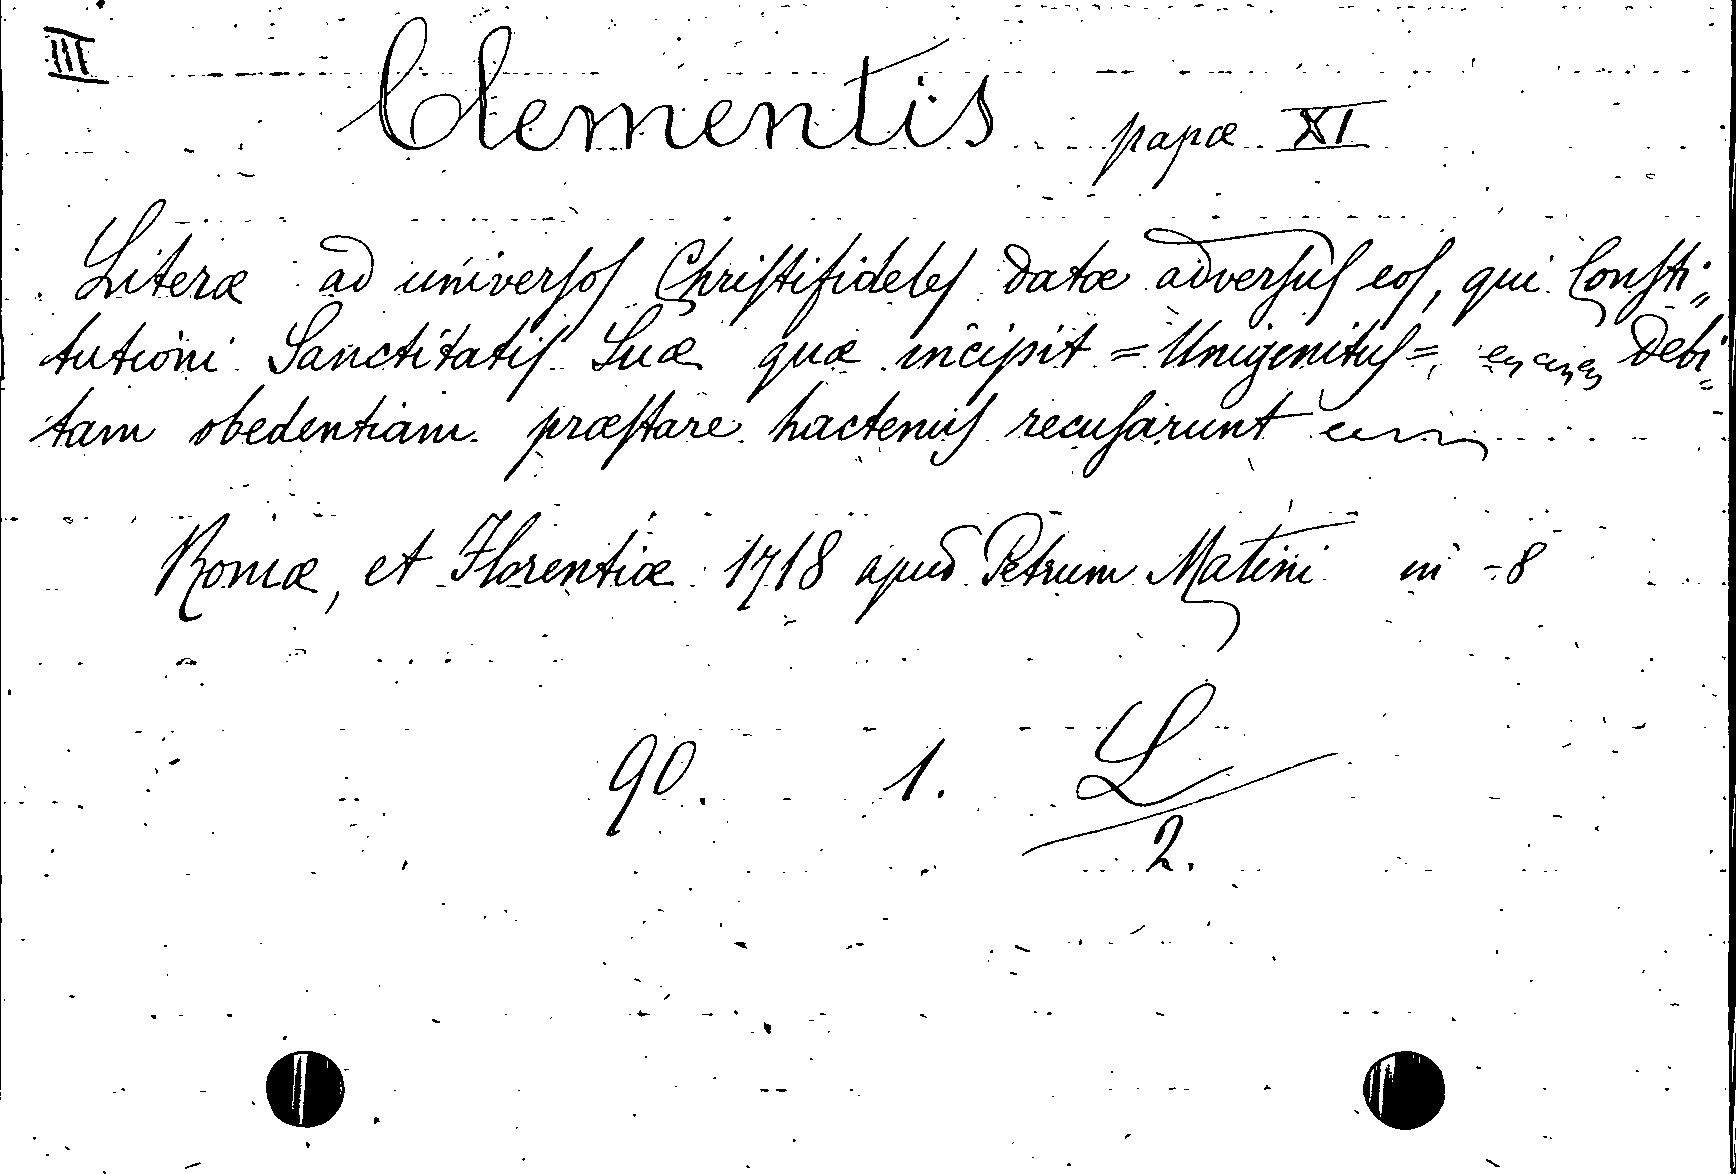 III
Clementis papæ XI
Literæ ad universos Christifideles datæ adversus eos, qui Consti„
tutioni Sanctitatis Suæ quæ incipit = Unigenitus = debi„
tam obedentiam præstare hactenus recusarunt
Romæ, et Florentiæ 1718 apud Petrum Matini in -8
90. 1. L
2.